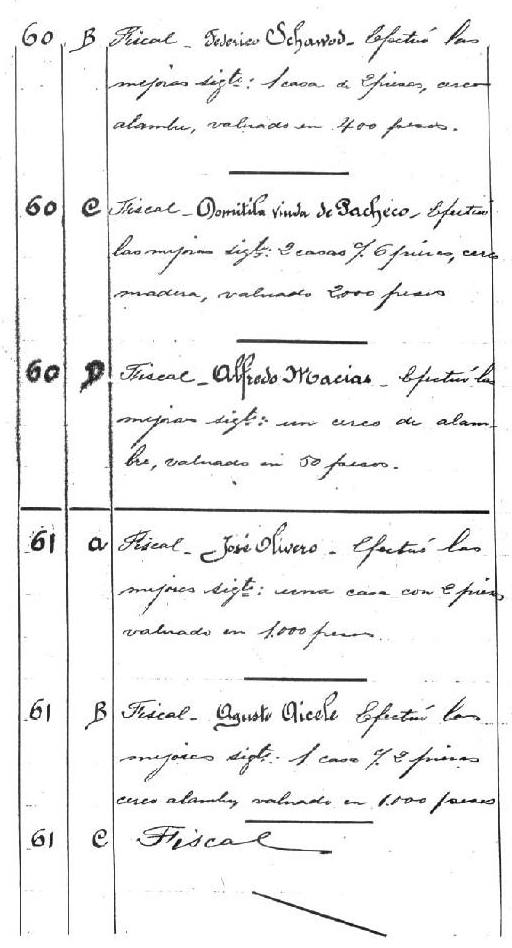 60 B Fiscal - Federico Schawod - Efectuó las
mejoras sigte: 1 casa de 2 piezas, cerco
alambre, valuado en 400 pesos.
60 C Fiscal - Domitila vinda de Pacheco - Efectuó
las mejoras sigte: 2 casas % 6 piezas, cerco
madera, valuado 2,000 pesos
60 D Fiscal - Alfredo Macias - Efectuó las
mejoras sigte: un cerco de alam-
bre, valuado en 50 pesos.
61 a Fiscal - José Olivero - Efectuó las
mejores sigte: una casa con 2 piezas
valuado en 1.000 pesos
61 B Fiscal - Agusto Aicele Efectuó las
mejores sigte: 1 casa % 2 piezas
cerco alambre, valuado en 1.000 pesos
61 C Fiscal